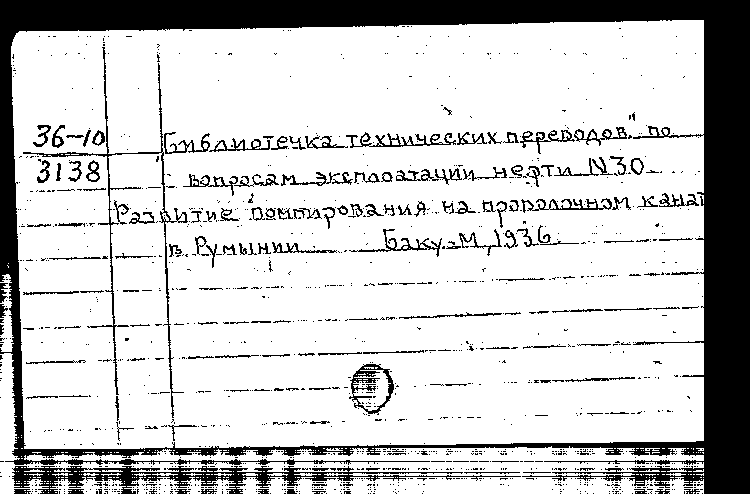 36-10
3138
Библиотечка технических переводов" по
вопросам эксплоатации нефти N30.
Развитие помпирования на проволочном канат
в Румынии Баку-М, 1936.